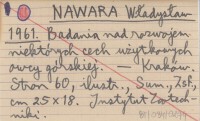 NAWARA Władysław
1961. Badania nad rozwojem
niektórych cech użytkowych
owcy górskiej. — Kraków.
Stron 60, ilustr., Sum., Zsf.,
cm 25 x 18. Instytut Zootech-
niki.